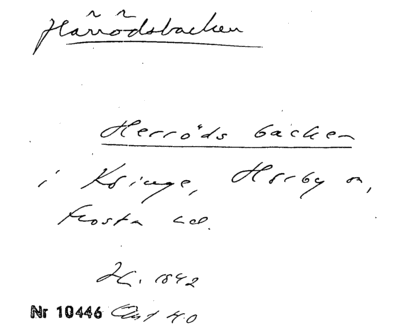 Härrödsbacken
Herröds backen
i Ksinge, Hörby sn,
Frosta hd.
H. 1842
Nr 10446 Akt 40